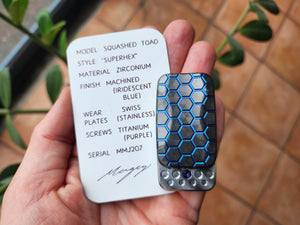 MODEL SQUASHED TOAD
STYLE "SUPERHEX"
MATERIAL ZIRCONIUM
FINISH MACHINED
(IRIDESCENT
BLUE)
WEAR SWISS
PLATES (STAINLESS)
SCREWS TITANIUM
(PURPLE)
SERIAL MMJ207